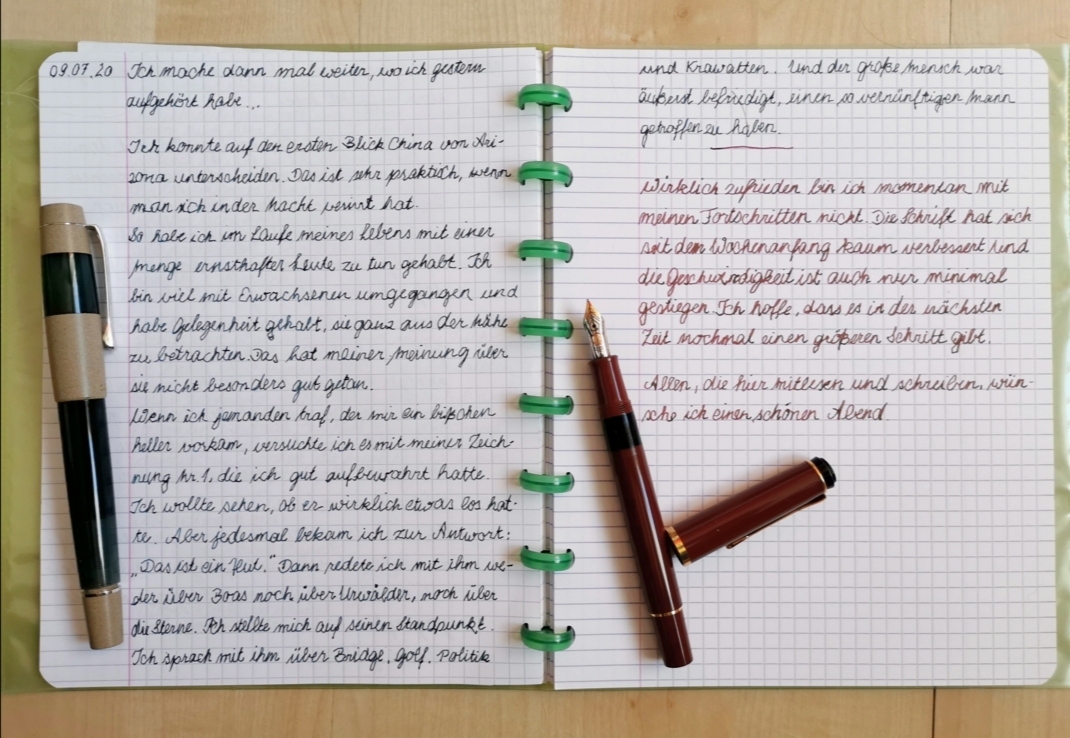 09.07.20 Ich mache dann mal weiter, wo ich gestern
aufgehört habe...
Ich konnte auf den ersten Blick China von Ari-
zona unterscheiden. Das ist sehr praktisch, wenn
man sich in der Nacht verirrt hat.
So habe ich im Laufe meines Lebens mit einer
Menge ernsthafter Leute zu tun gehabt. Ich
bin viel mit Erwachsenen umgegangen und
habe Gelegenheit gehabt, sie ganz aus der Nähe
zu betrachten. Das hat meiner Meinung über
sie nicht besonders gut getan.
Wenn ich jemanden traf, der mir ein bißchen
heller vorkam, versuchte ich es mit meiner Zeich-
nung Nr. 1, die ich gut aufbewahrt hatte.
Ich wollte sehen, ob er wirklich etwas los hat-
te. Aber jedesmal bekam ich zur Antwort:
„Das ist ein Hut." Dann redete ich mit ihm we-
der über Boas noch über Urwälder, noch über
die Sterne. Ich stellte mich auf seinen Standpunkt.
Ich sprach mit ihm über Bridge, Golf, Politik
und Krawatten. Und der große Mensch war
äußerst befriedigt, einen so vernünftigen Mann
getroffen zu haben.
Wirklich zufrieden bin ich momentan mit
meinen Fortschritten nicht. Die Schrift hat sich
seit dem Wochenanfang kaum verbessert und
die Geschwindigkeit ist auch nur minimal
gestiegen. Ich hoffe, dass es in der nächsten
Zeit nochmal einen größeren Schritt gibt.
Allen, die hier mitlesen und schreiben, wün-
sche ich einen schönen Abend.